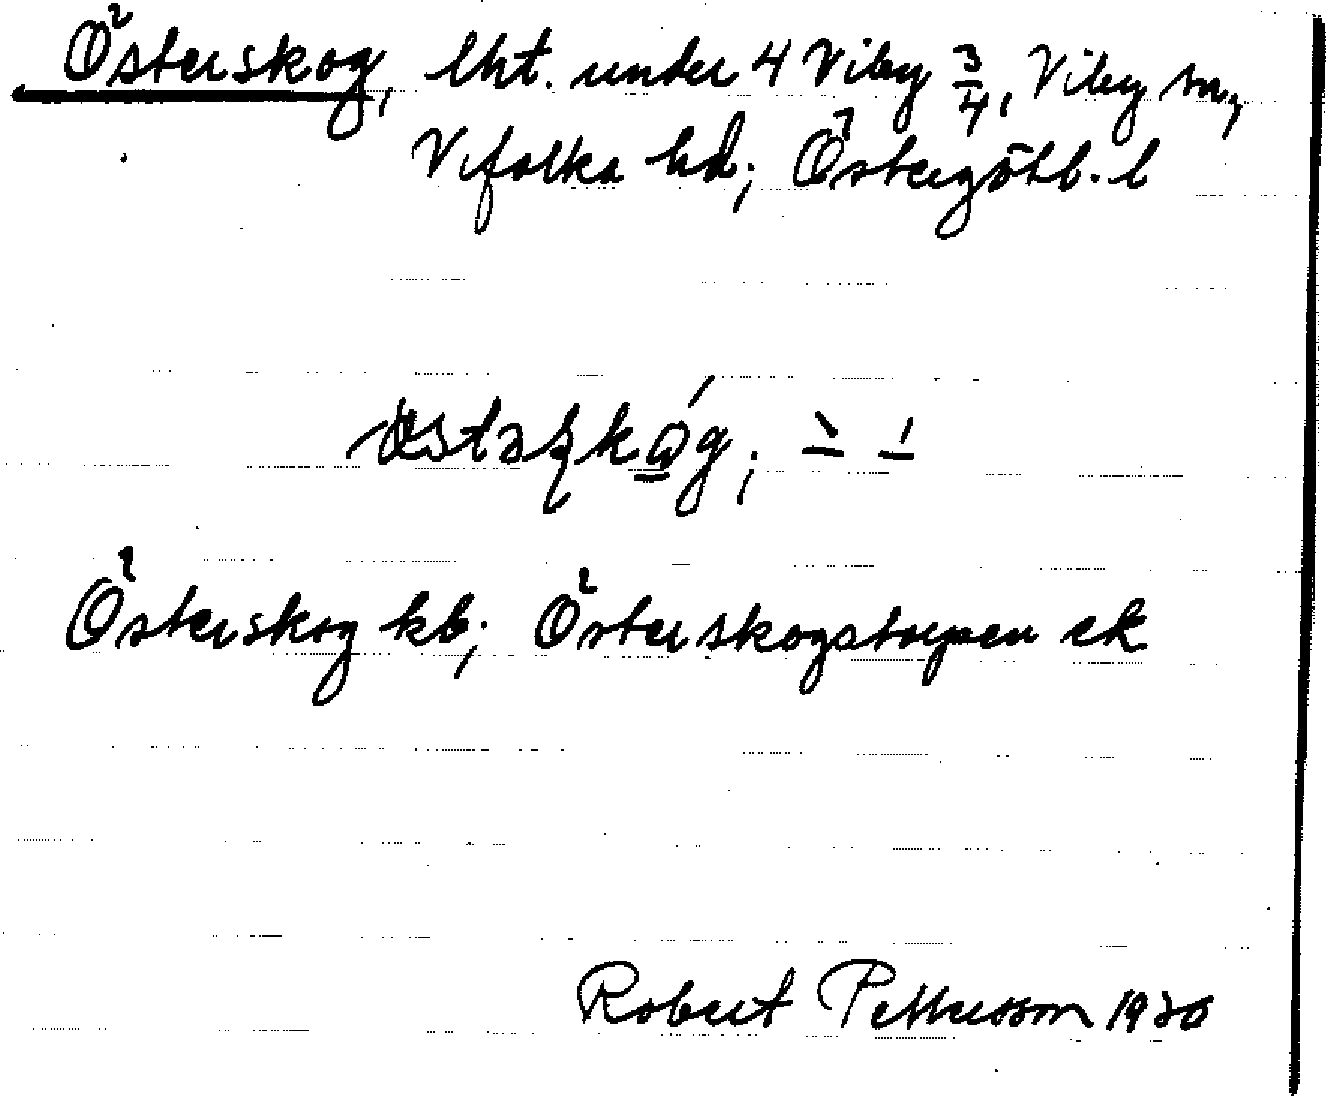 Österskog, lht. under 4 Viby 3/4, Viby sn,
Vifolka hd; Östergötl. l
Österskog kb; Österskogstorpen ek
Robert Pettersson 1930